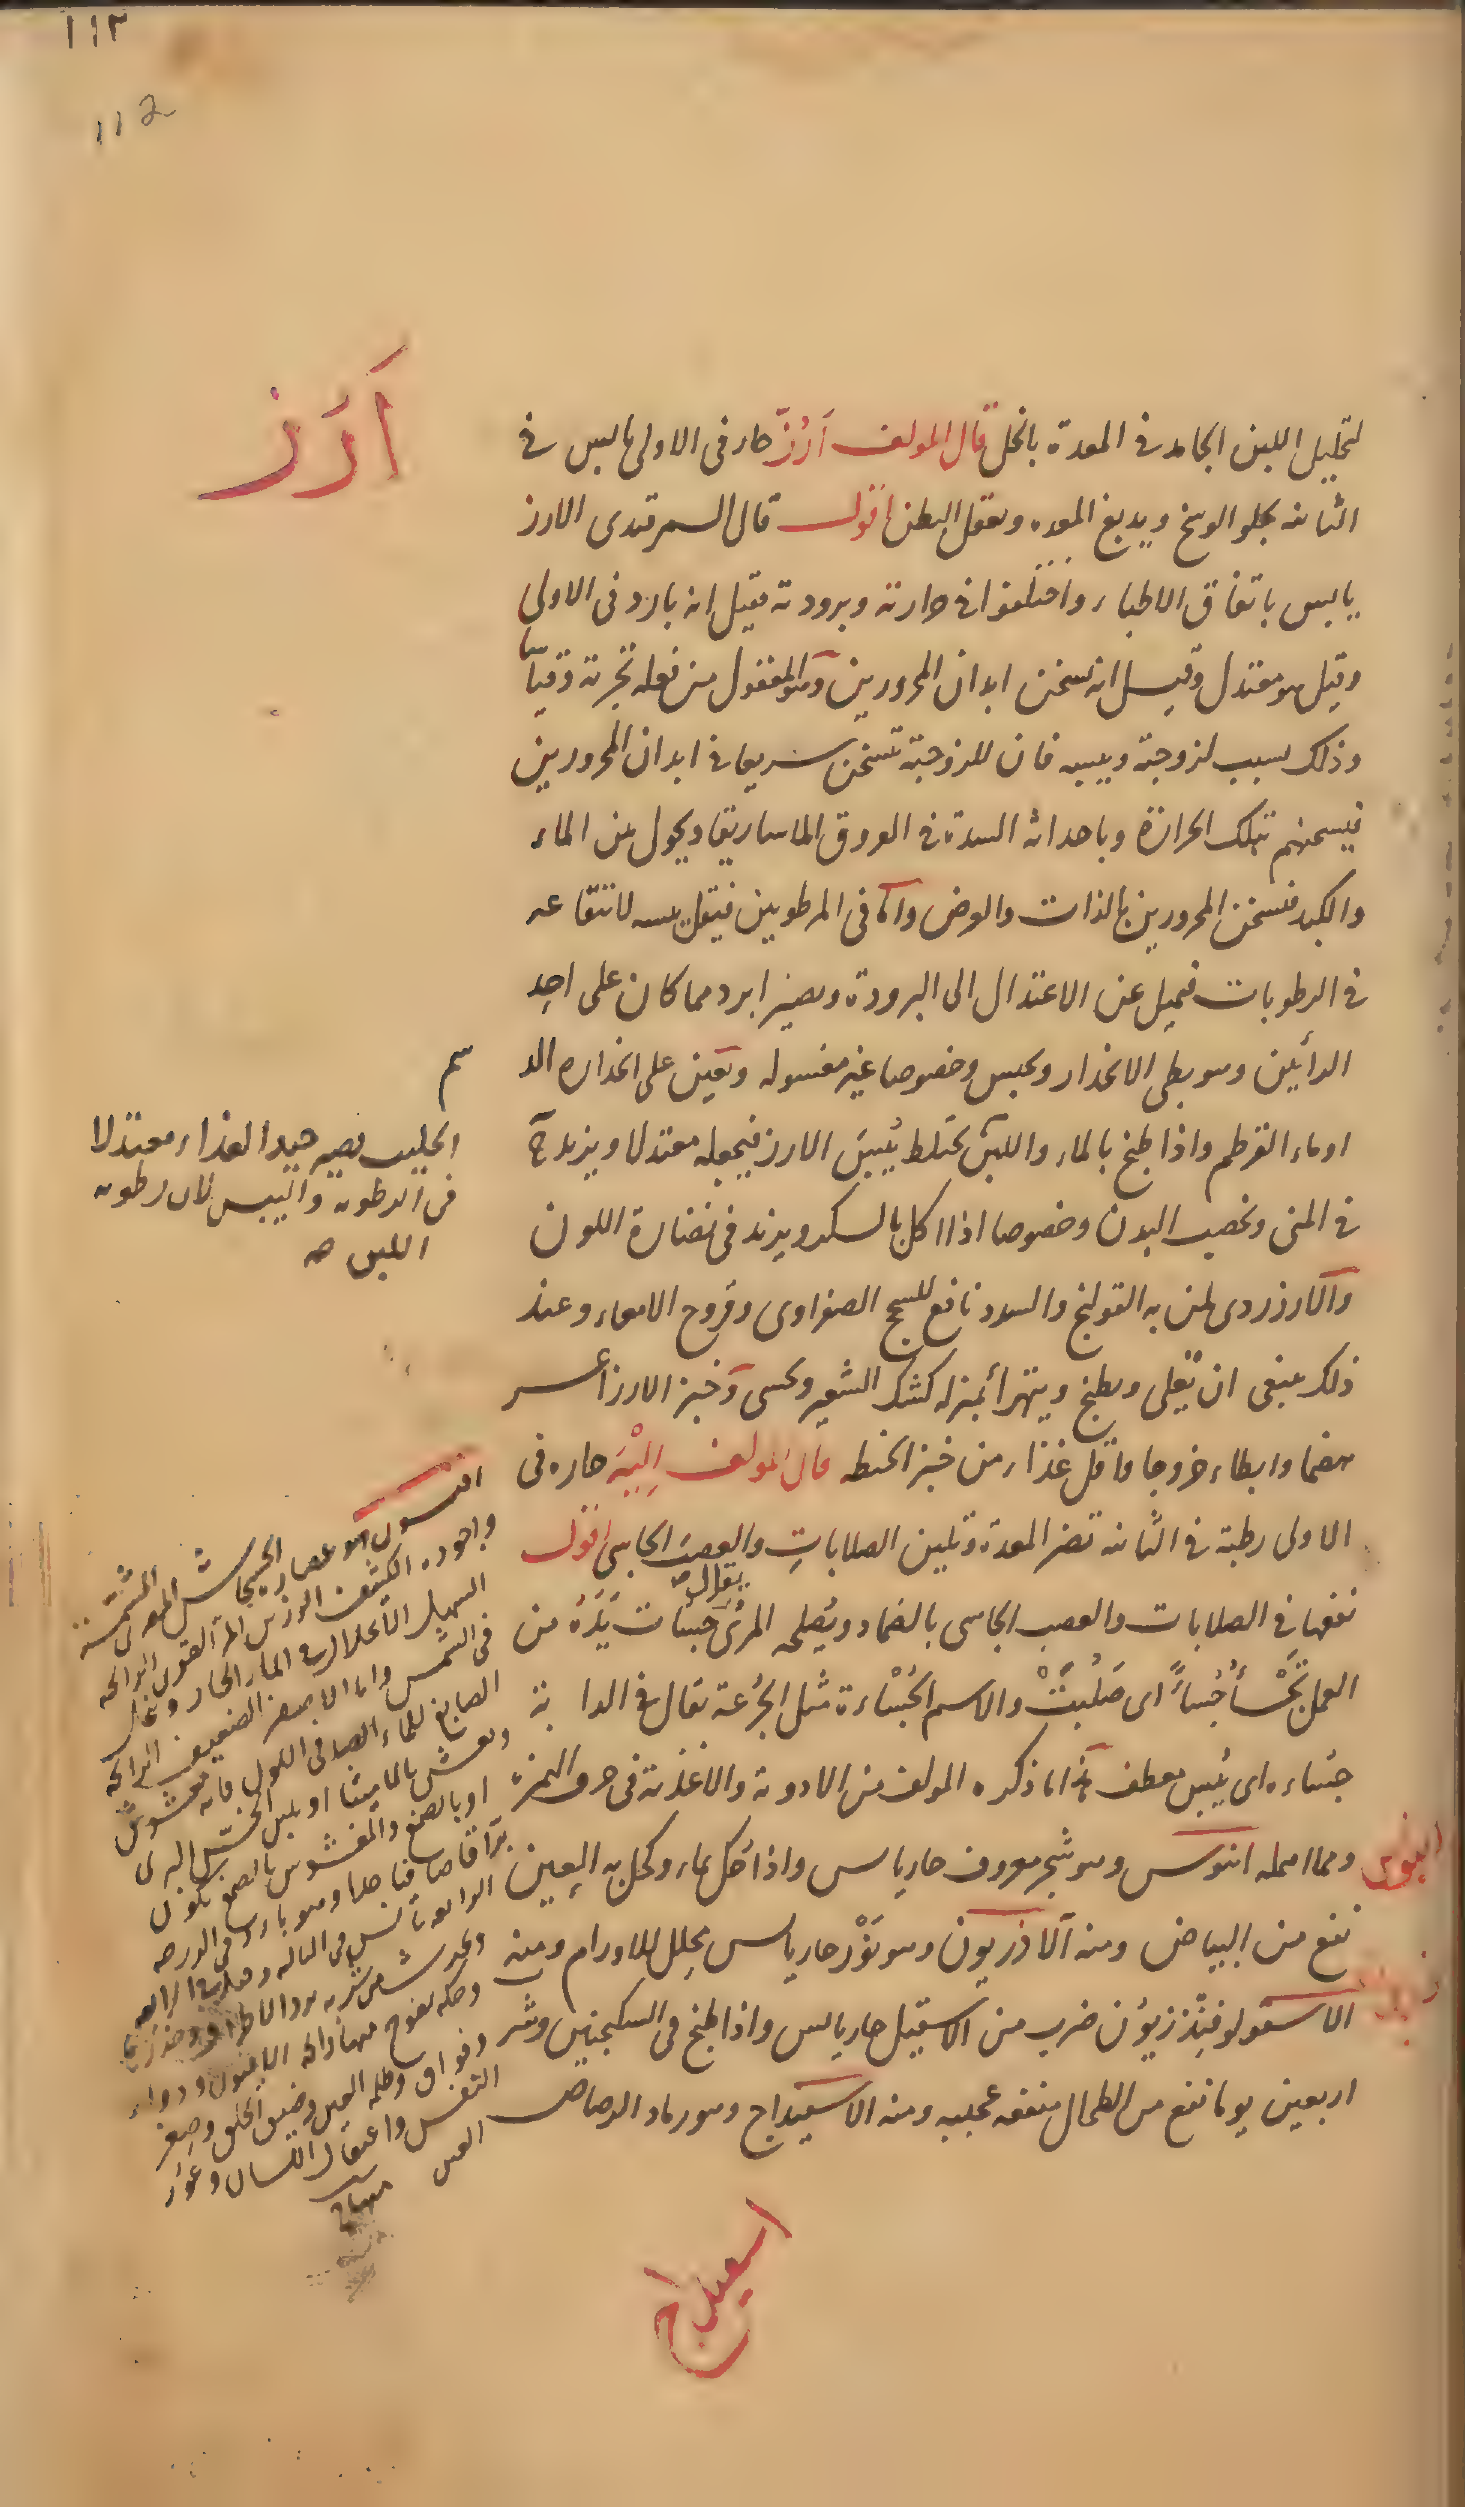 ١١٣
112
اَرَز
لتحليل اللبن الجامد في المعدة بالخل قال المولف اَرُزّ حار فى الاولى يابس في
الثانىه يجلو الوسخ ويدبغ المعده وىعقل البطن اقول قال السمرقندى الارز
يابس باتفاق الاطباء واختلفوا في حرارته وبرودته فقيل انه بارد فى الاولى
وقيل هو معتدل وقيل انه يسخن ابدان المحرورين وهو المعقول من فعله تجربة وقياسا
وذلك بسبب لزوجته ويبسه فان للزوجته تسخن سريعا في ابدان المحرورين
فيسخنهم بتلك الحرارة وباحداثه السدة في العروق الماساريقا ويحول بين الماء
والكبد فيسخن المحرورين بالذات والعرض واما فى المرطوبين فيقل يبسه لانتقاعه
في الرطوبات فيميل عن الاعتدال الى البرودة ويصير ابرد مما كان على احد
الرأيين وهو بطى الانحدار ويحبس وخصوصا غير مغسوله ويعين على انحداره الد
سم
او ماء القرطم واذا طبخ بالماء واللبن يختلط يُبيس الارز فيجعله معتدلا ويزيد ح
الحليب يصير جيد الغذاء معتدلا
فى الرطوبه واليبس لان رطوبه
اللبن صه
في المنى ويخصب البدن وخصوصا اذا اكل بالسكر ويزيد فى نضارة اللون
والارز ردى لمن به القولنج والسدد نافع للسحج الصفراوى وقروح الامعاء وعند
ذلك ينبغى ان يُقلى ويطبخ ويتهرأ بمنزله كشك الشعير ويحسى وخبز الارز اعسر
هضما وابطاء خروجا واقل غذاء من خبز الحنطه قال المولف اِلْيَة حاره فى
الاولى رطبة في الثانيه تضر المعدة وتلين الصلابات والعصب الجاسى اقول
نفعها في الصلابات والعصب الجاسى بالضماد ويُصلحه المرىّ يقال جسَأَت يَدُهُ من
العمل تَجْسَأُ جُسأً اى صَلُبَتْ والاسم الجُسْاءة مثل الجُرعة يقال في الدابة
جُساءه اى يُبس معطف هذا ما ذكره المولف من الادوية والاغذية فى حرف الهمزه
ومما اهمله ابنوس وهو شجر معروف حار يابس واذا حُكّ بماء وكحل به العين
ابنوس
نفع من البياض ومنه الآذريون وهو نَوْر حار يابس محلل للاورام ومنه
الاسقولوفندريون ضرب من الاسقيل حار يابس واذا طبخ فى السكنجبين وشر
اربعين يوما نفع من الطحال منفعه عجيبه ومنه الاسفيداج وهو رماد الرصاص
افىىون هو عصاره الخشخاش المصرى المشمسة
واجوده الكثيف الوزين المر القوى الرائحه
السهل الانحلال فى الماء الحار وىحل
فى الشمس واما الاصفر الضعيف الرائحه
الصابغ للماء الصافى اللون فانه مغشوش
ويغش بالماميثا او بلبن الخس البرى
او بالصمغ والمغشوش بالصمغ ىكون
براقا صافيا جدا وهو بارد فى الدرجه
الرابعه يابس فى الثالثه
التنفس واعتقال اللسان وغور
العين
منهاج
اسفيداج